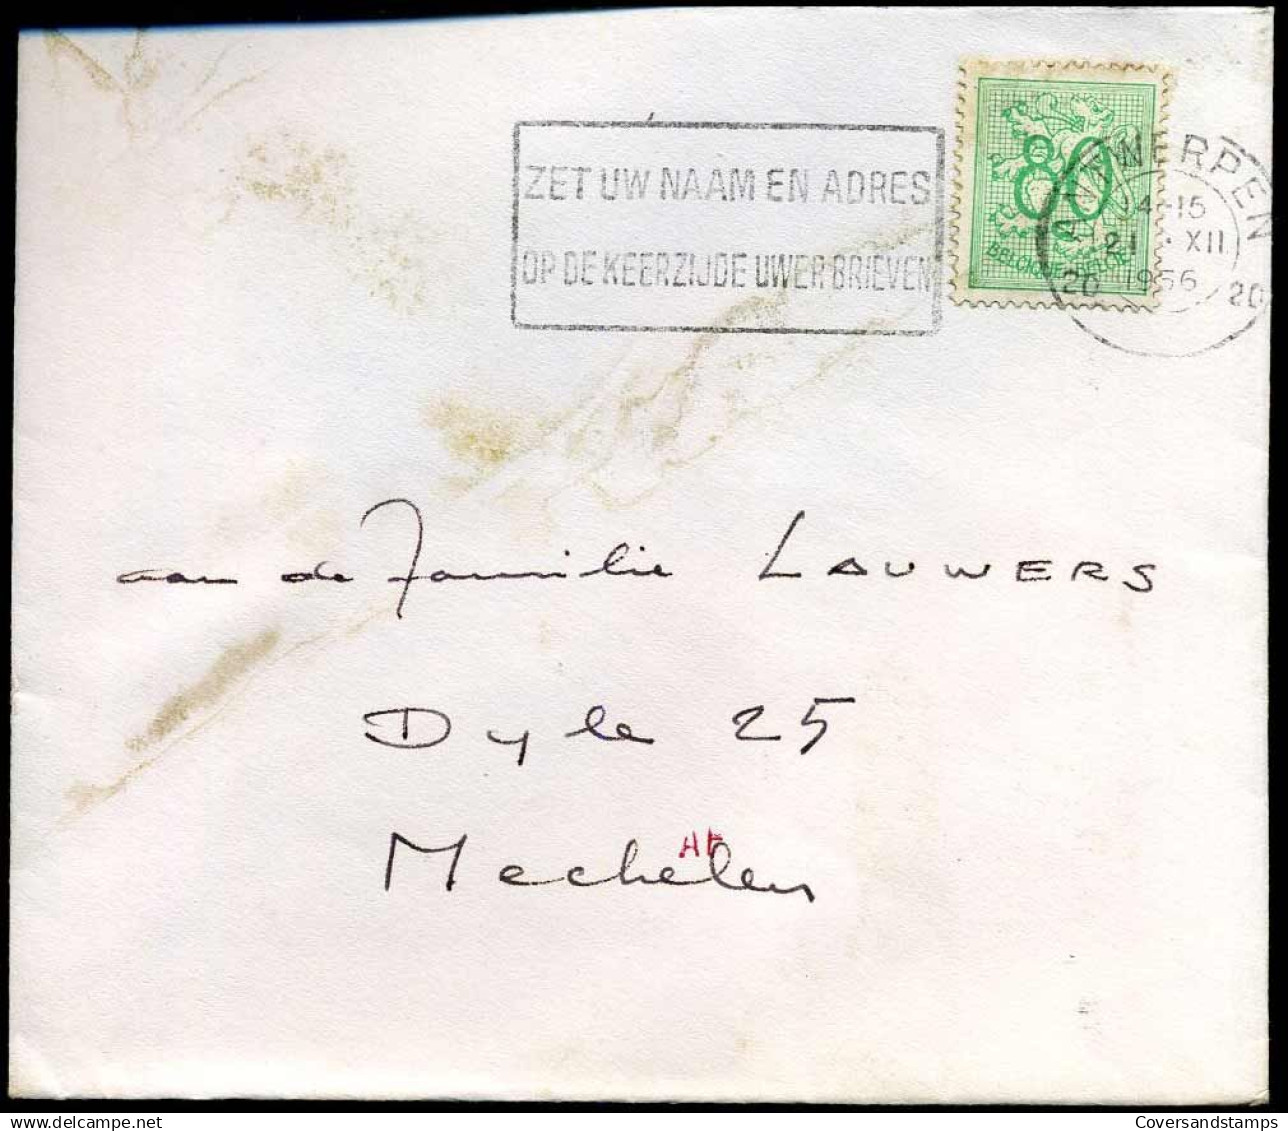 ZET UW NAAM EN ADRES
OP DE KEERZIJDE UWER BRIEVEN
80
BELGIQUE-BELGIE
ANTWERPEN
14-15
21 · XII
1956
20 20
aan de familie LAUWERS
Dyle 25
Mechelen
Coversandstamps